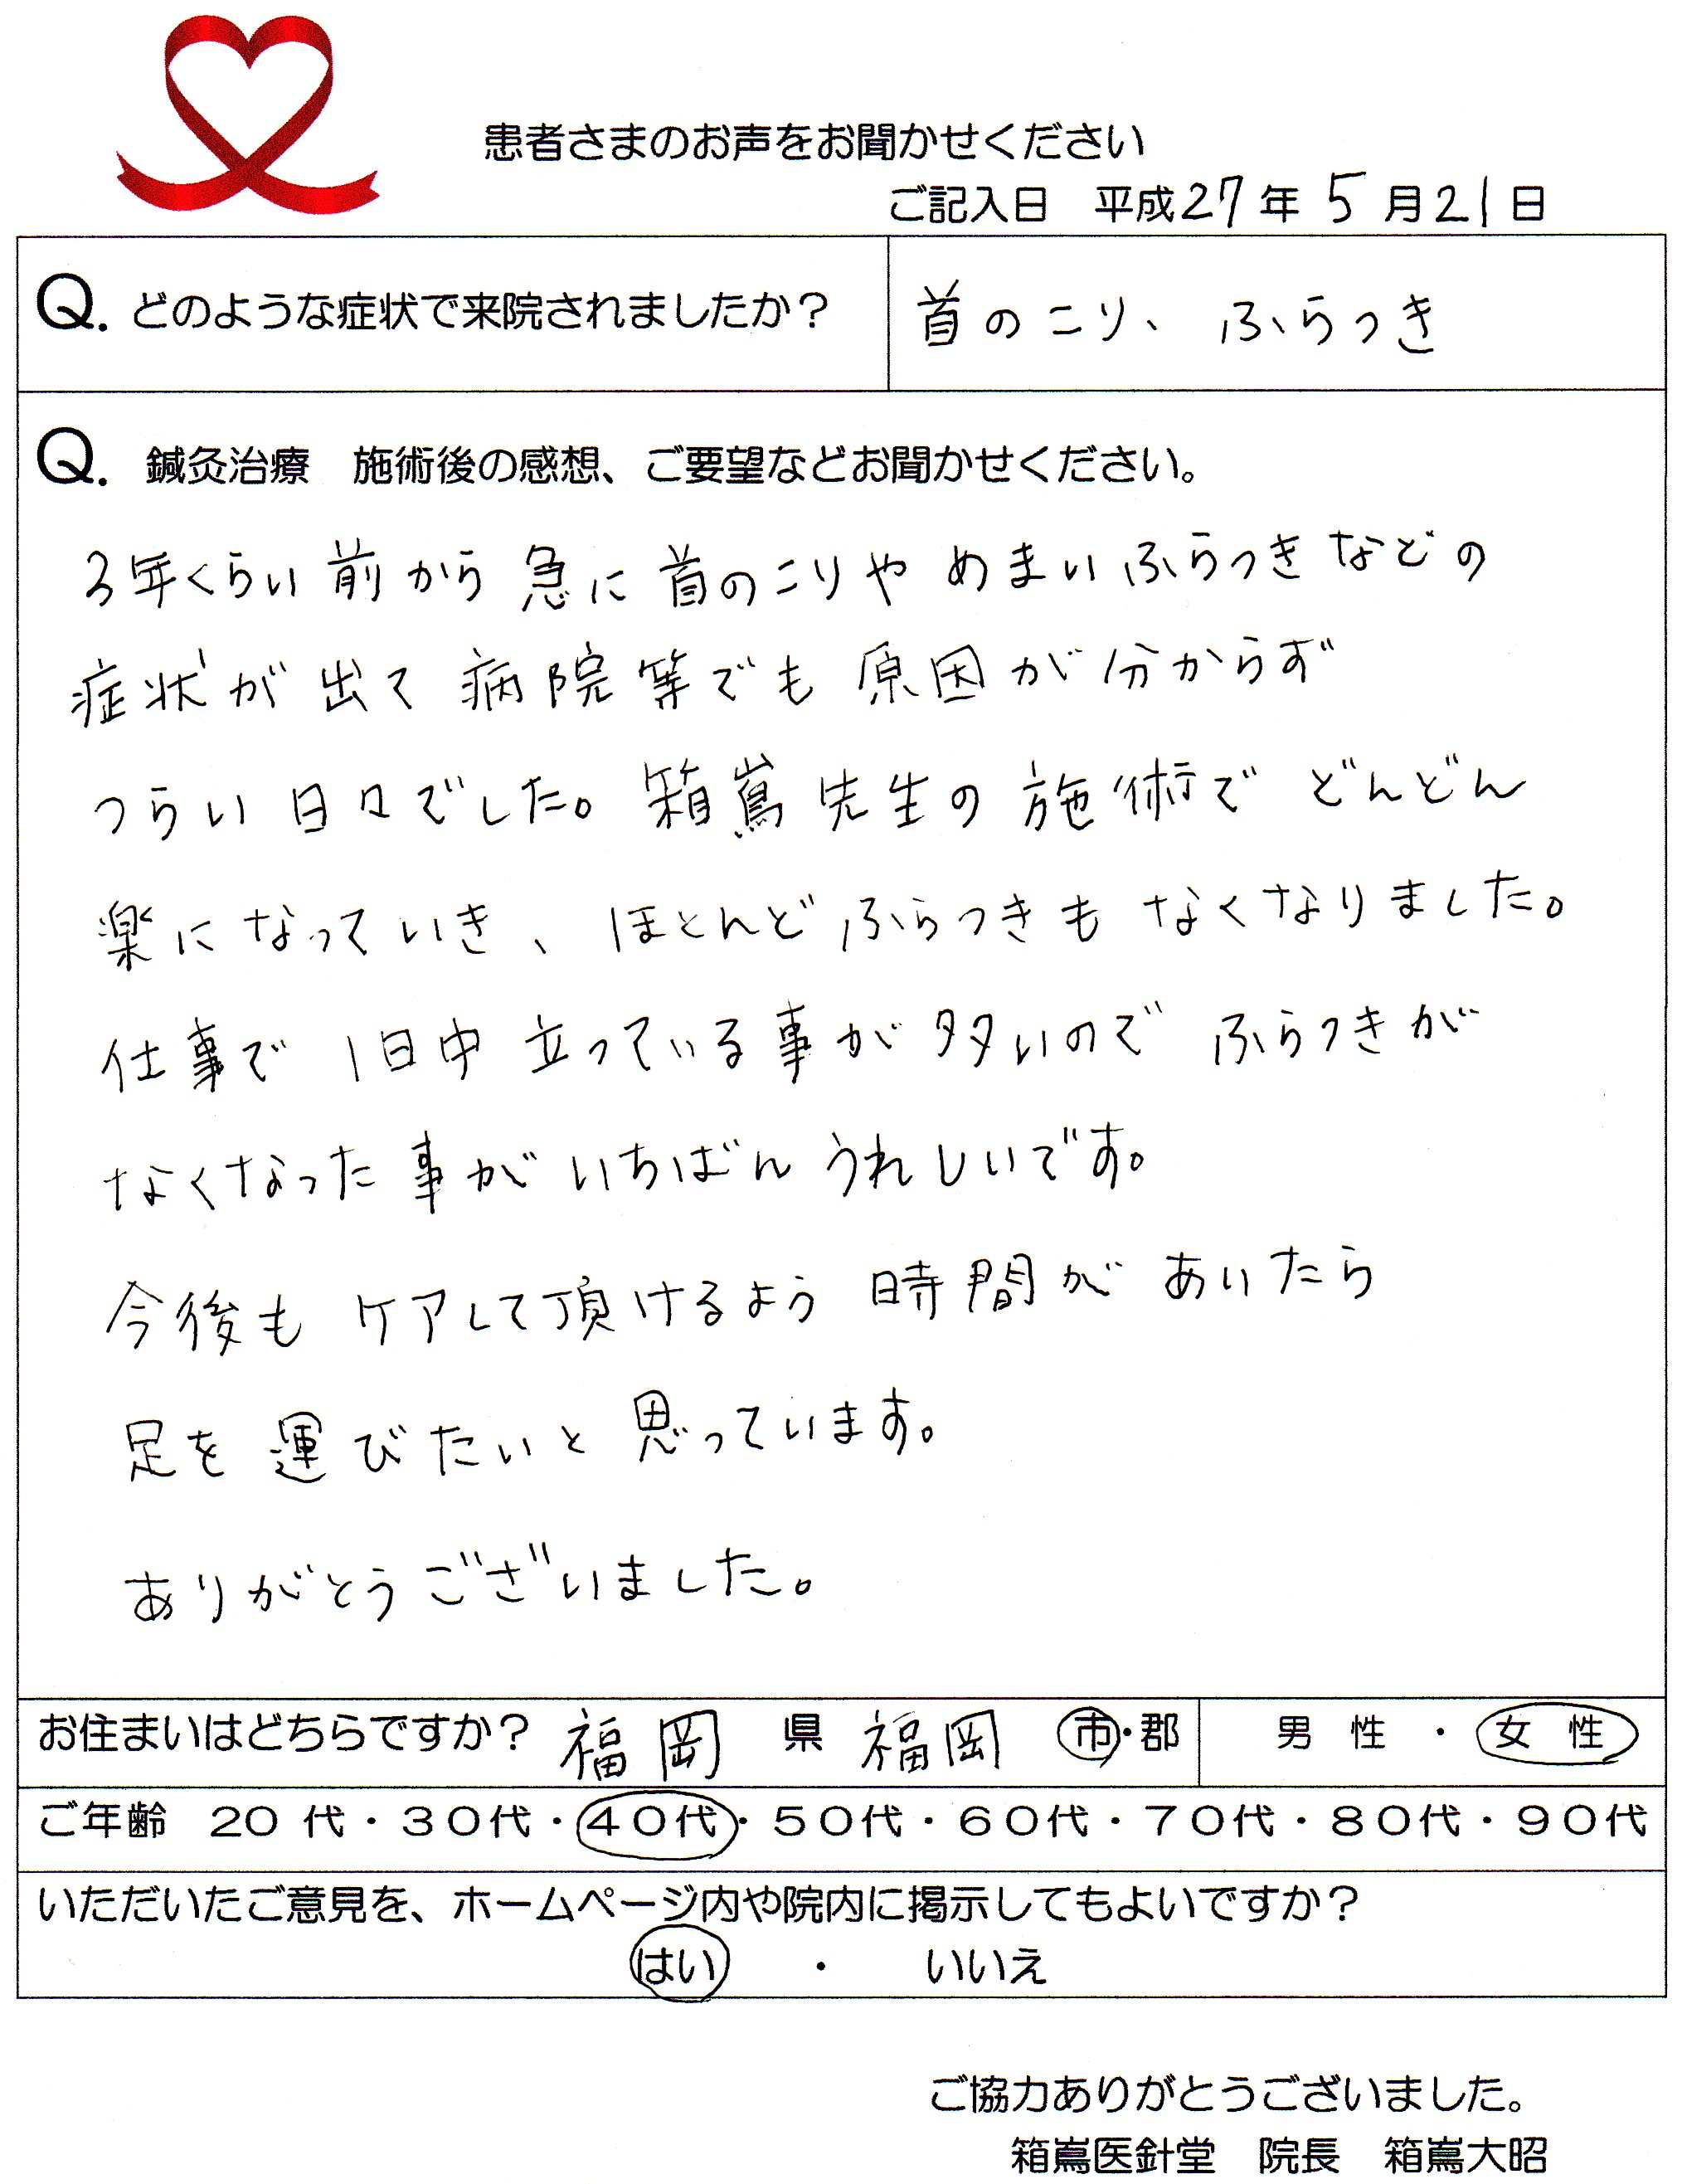 患者さまのお声をお聞かせください
ご記入日　平成27年 5月21日
Q. どのような症状で来院されましたか？
首のこり、ふらつき
Q. 鍼灸治療　施術後の感想、ご要望などお聞かせください。
3年くらい前から急に首のこりやめまいふらつきなどの
症状が出て病院等でも原因が分からず
つらい日々でした。箱嶌先生の施術でどんどん
楽になっていき、ほとんどふらつきもなくなりました。
仕事で1日中立っている事が多いのでふらつきが
なくなった事がいちばんうれしいです。
今後もケアして頂けるよう時間があいたら
足を運びたいと思っています。
ありがとうございました。
お住まいはどちらですか？ 福岡 県 福岡 市・郡　男性・女性
ご年齢　20代・30代・40代・50代・60代・70代・80代・90代
いただいたご意見を、ホームページ内や院内に掲示してもよいですか？
はい　・　いいえ
ご協力ありがとうございました。
箱嶌医針堂　院長　箱嶌大昭